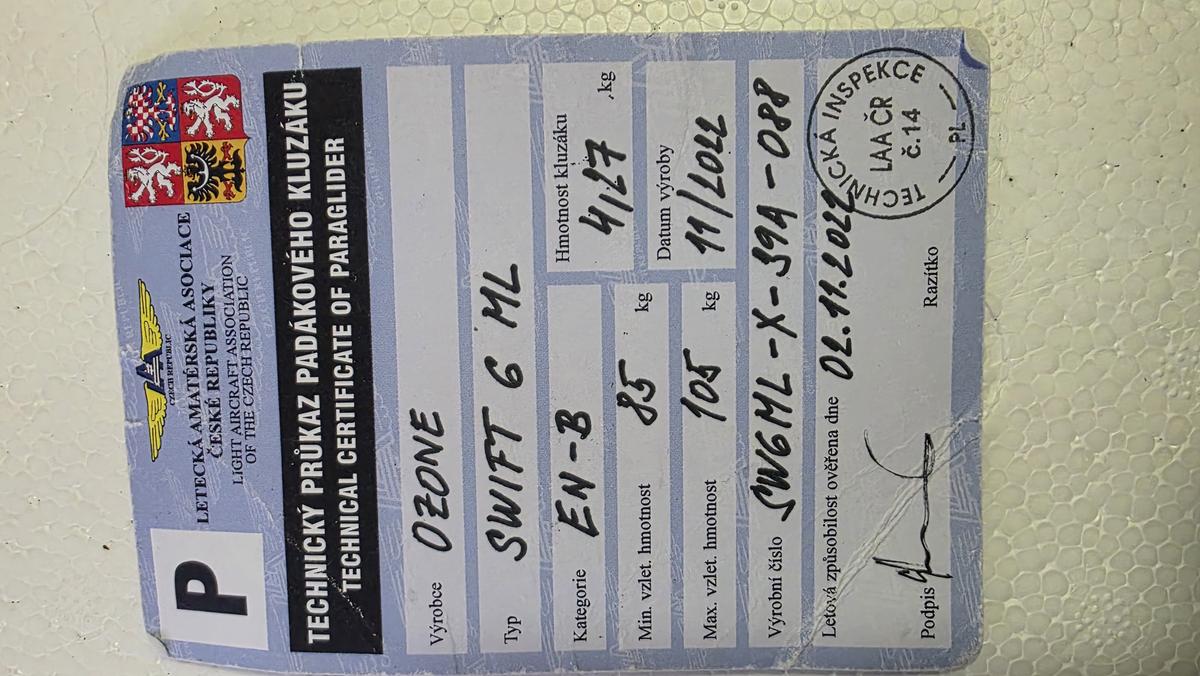 P
CZECH REPUBLIC
LETECKÁ AMATÉRSKÁ ASOCIACE
ČESKÉ REPUBLIKY
LIGHT AIRCRAFT ASSOCIATION
OF THE CZECH REPUBLIC
TECHNICKÝ PRŮKAZ PADÁKOVÉHO KLUZÁKU
TECHNICAL CERTIFICATE OF PARAGLIDER
Výrobce OZONE
Typ SWIFT 6 ML
Kategorie EN-B
Hmotnost kluzáku 4,27 kg
Min. vzlet. hmotnost 85 kg
Datum výroby 11/2022
Max. vzlet. hmotnost 105 kg
Výrobní číslo SW6ML-X-39A-088
Letová způsobilost ověřena dne 02.11.2022
Podpis
Razítko
TECHNICKÁ INSPEKCE
LAA ČR
č.14
PL